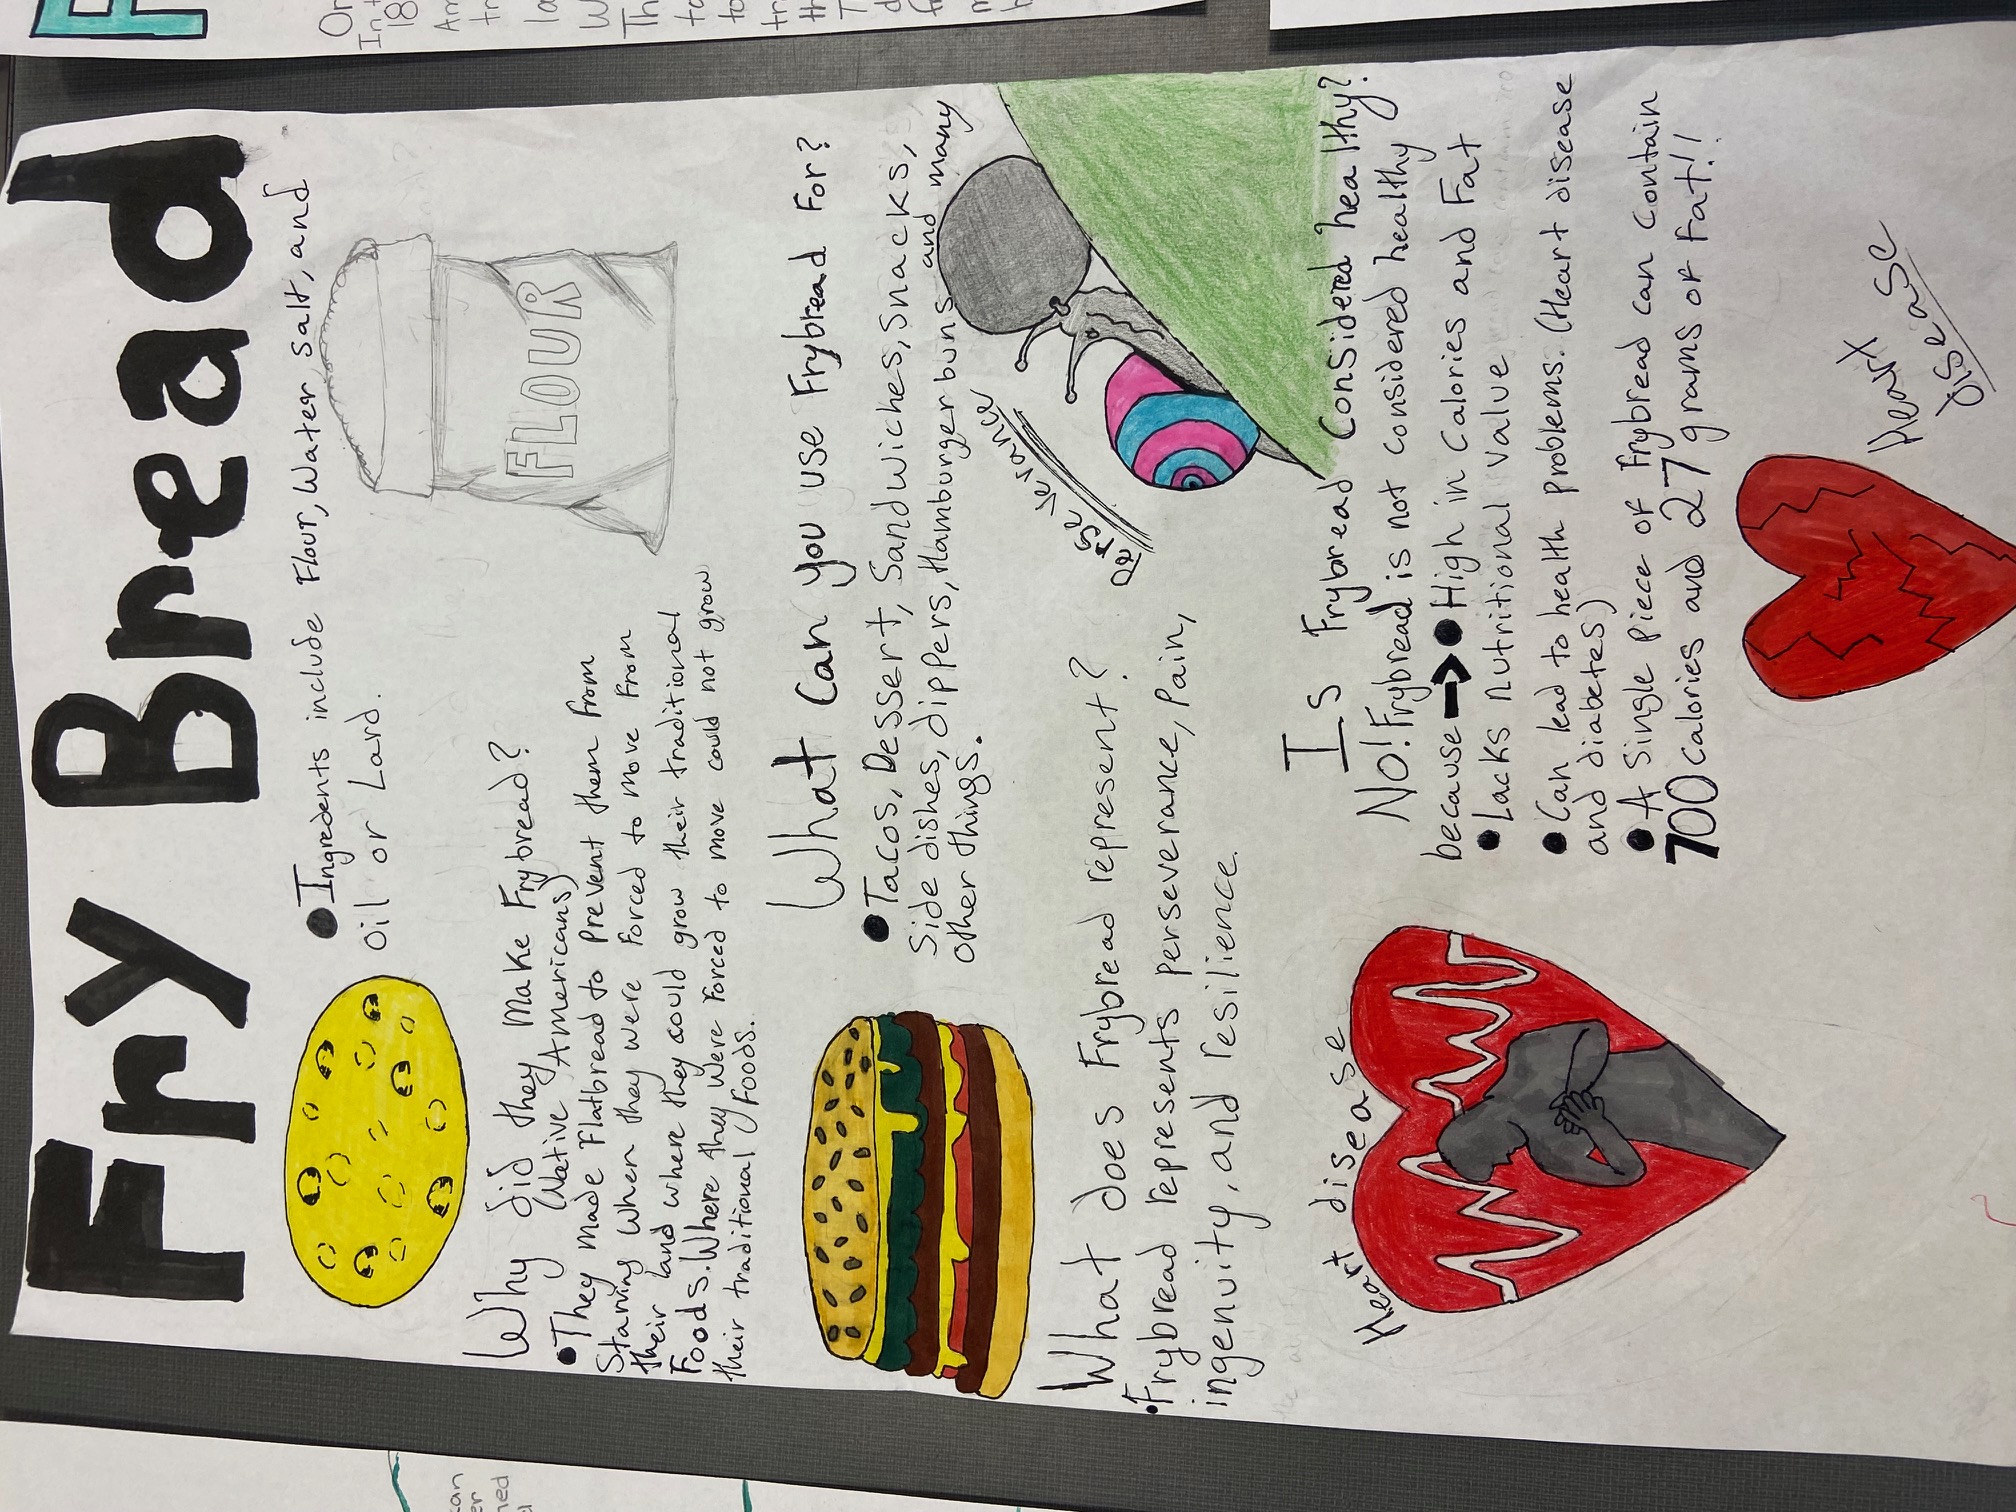 Fry Bread
•Ingredents include Flour, Water, Salt, and
oil or Lard.
FLOUR
Why did they make Frybread?
(Native Americans)
•They made Flatbread to prevent them from
Starving when they were forced to move from
their land where they could grow their traditional
Foods. Where they were forced to move could not grow
their traditional Foods.
What can you use Frybread For?
•Tacos, Dessert, Sandwiches, Snacks,
Side dishes, dippers, Hamburger buns and many
other things.
Perseverance
What does Frybread represent?
•Frybread represents perseverance, Pain,
ingenuity, and resilience.
Heart disease
Is Frybread Considered healthy?
No! Frybread is not considered healthy
because → • High in Calories and Fat
•Lacks nutritional Value
•Can lead to health problems. (Heart disease
and diabetes)
•A Single piece of Frybread can contain
700 calories and 27 grams of Fat!!
Heart
disease